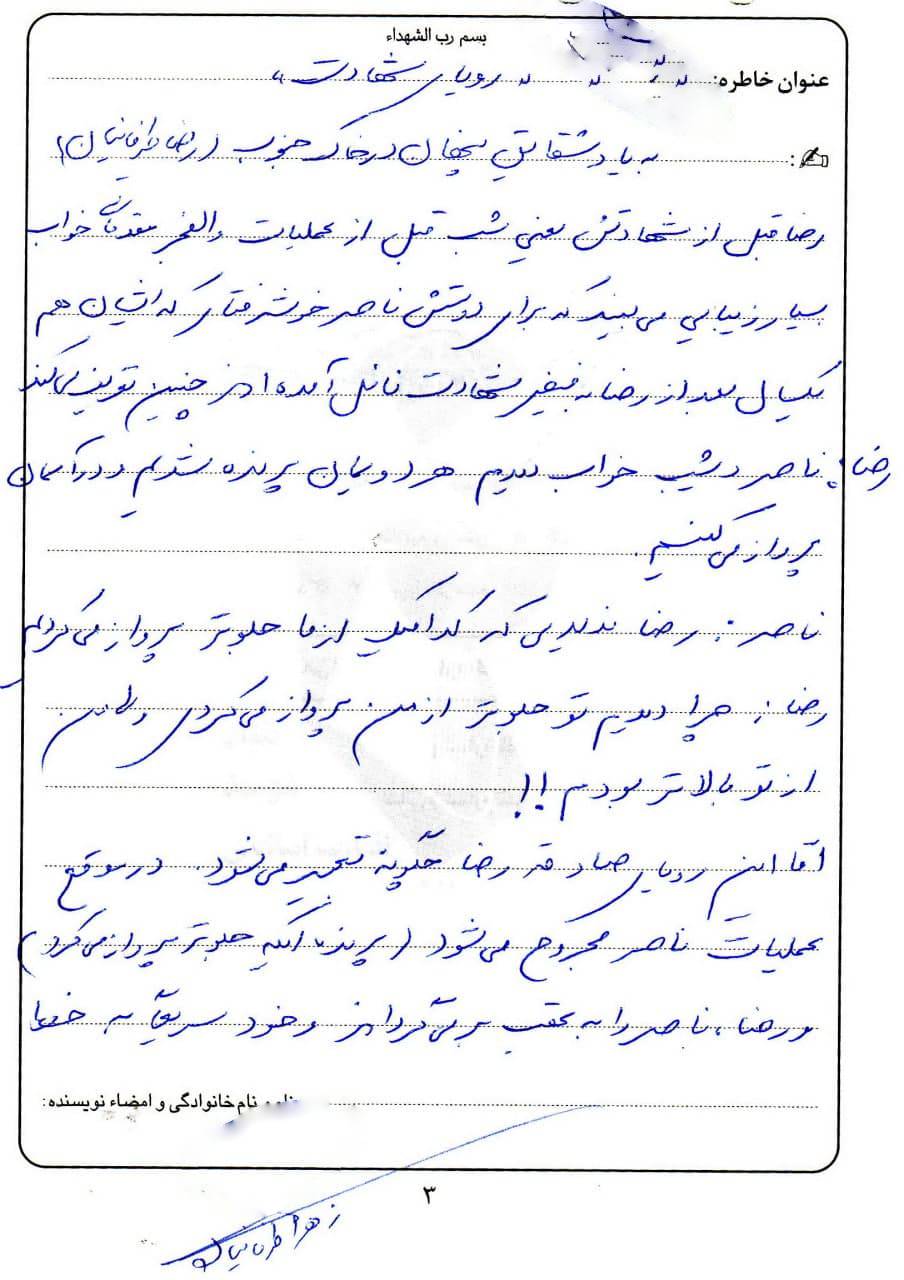 بسم رب الشهداء
عنوان خاطره: رویای شهادت"
به یاد شقایق پنهان در خاک جنوب (رضا طرفانیان)
رضا قبل از شهادتش یعنی شب قبل از عملیات والفجر مقدماتی خواب
بسیار زیبایی می بیند که برای دوستش ناصر خوشرفتار که ایشان هم
یکسال بعد از رضا به فیض شهادت نائل آمده اند چنین تعریف می کند
رضا: ناصر دیشب خواب دیدم هر دویمان پرنده شدیم و در آسمان
پرواز می کنیم.
ناصر: رضا ندیدی که کدامیک از ما جلوتر پرواز می کردیم
رضا: چرا دیدم تو جلوتر از من پرواز می کردی ولی من
از تو بالاتر بودم !!
اما این رویای صادقه رضا چگونه تعبیر می شود. در موقع
عملیات ناصر مجروح می شود (پرنده ایکه جلوتر پرواز می کرد)
و رضا، ناصر را به عقب بر می گرداند و خود سریعاً به خط
نام و نام خانوادگی و امضاء نویسنده:
۳
زهرا